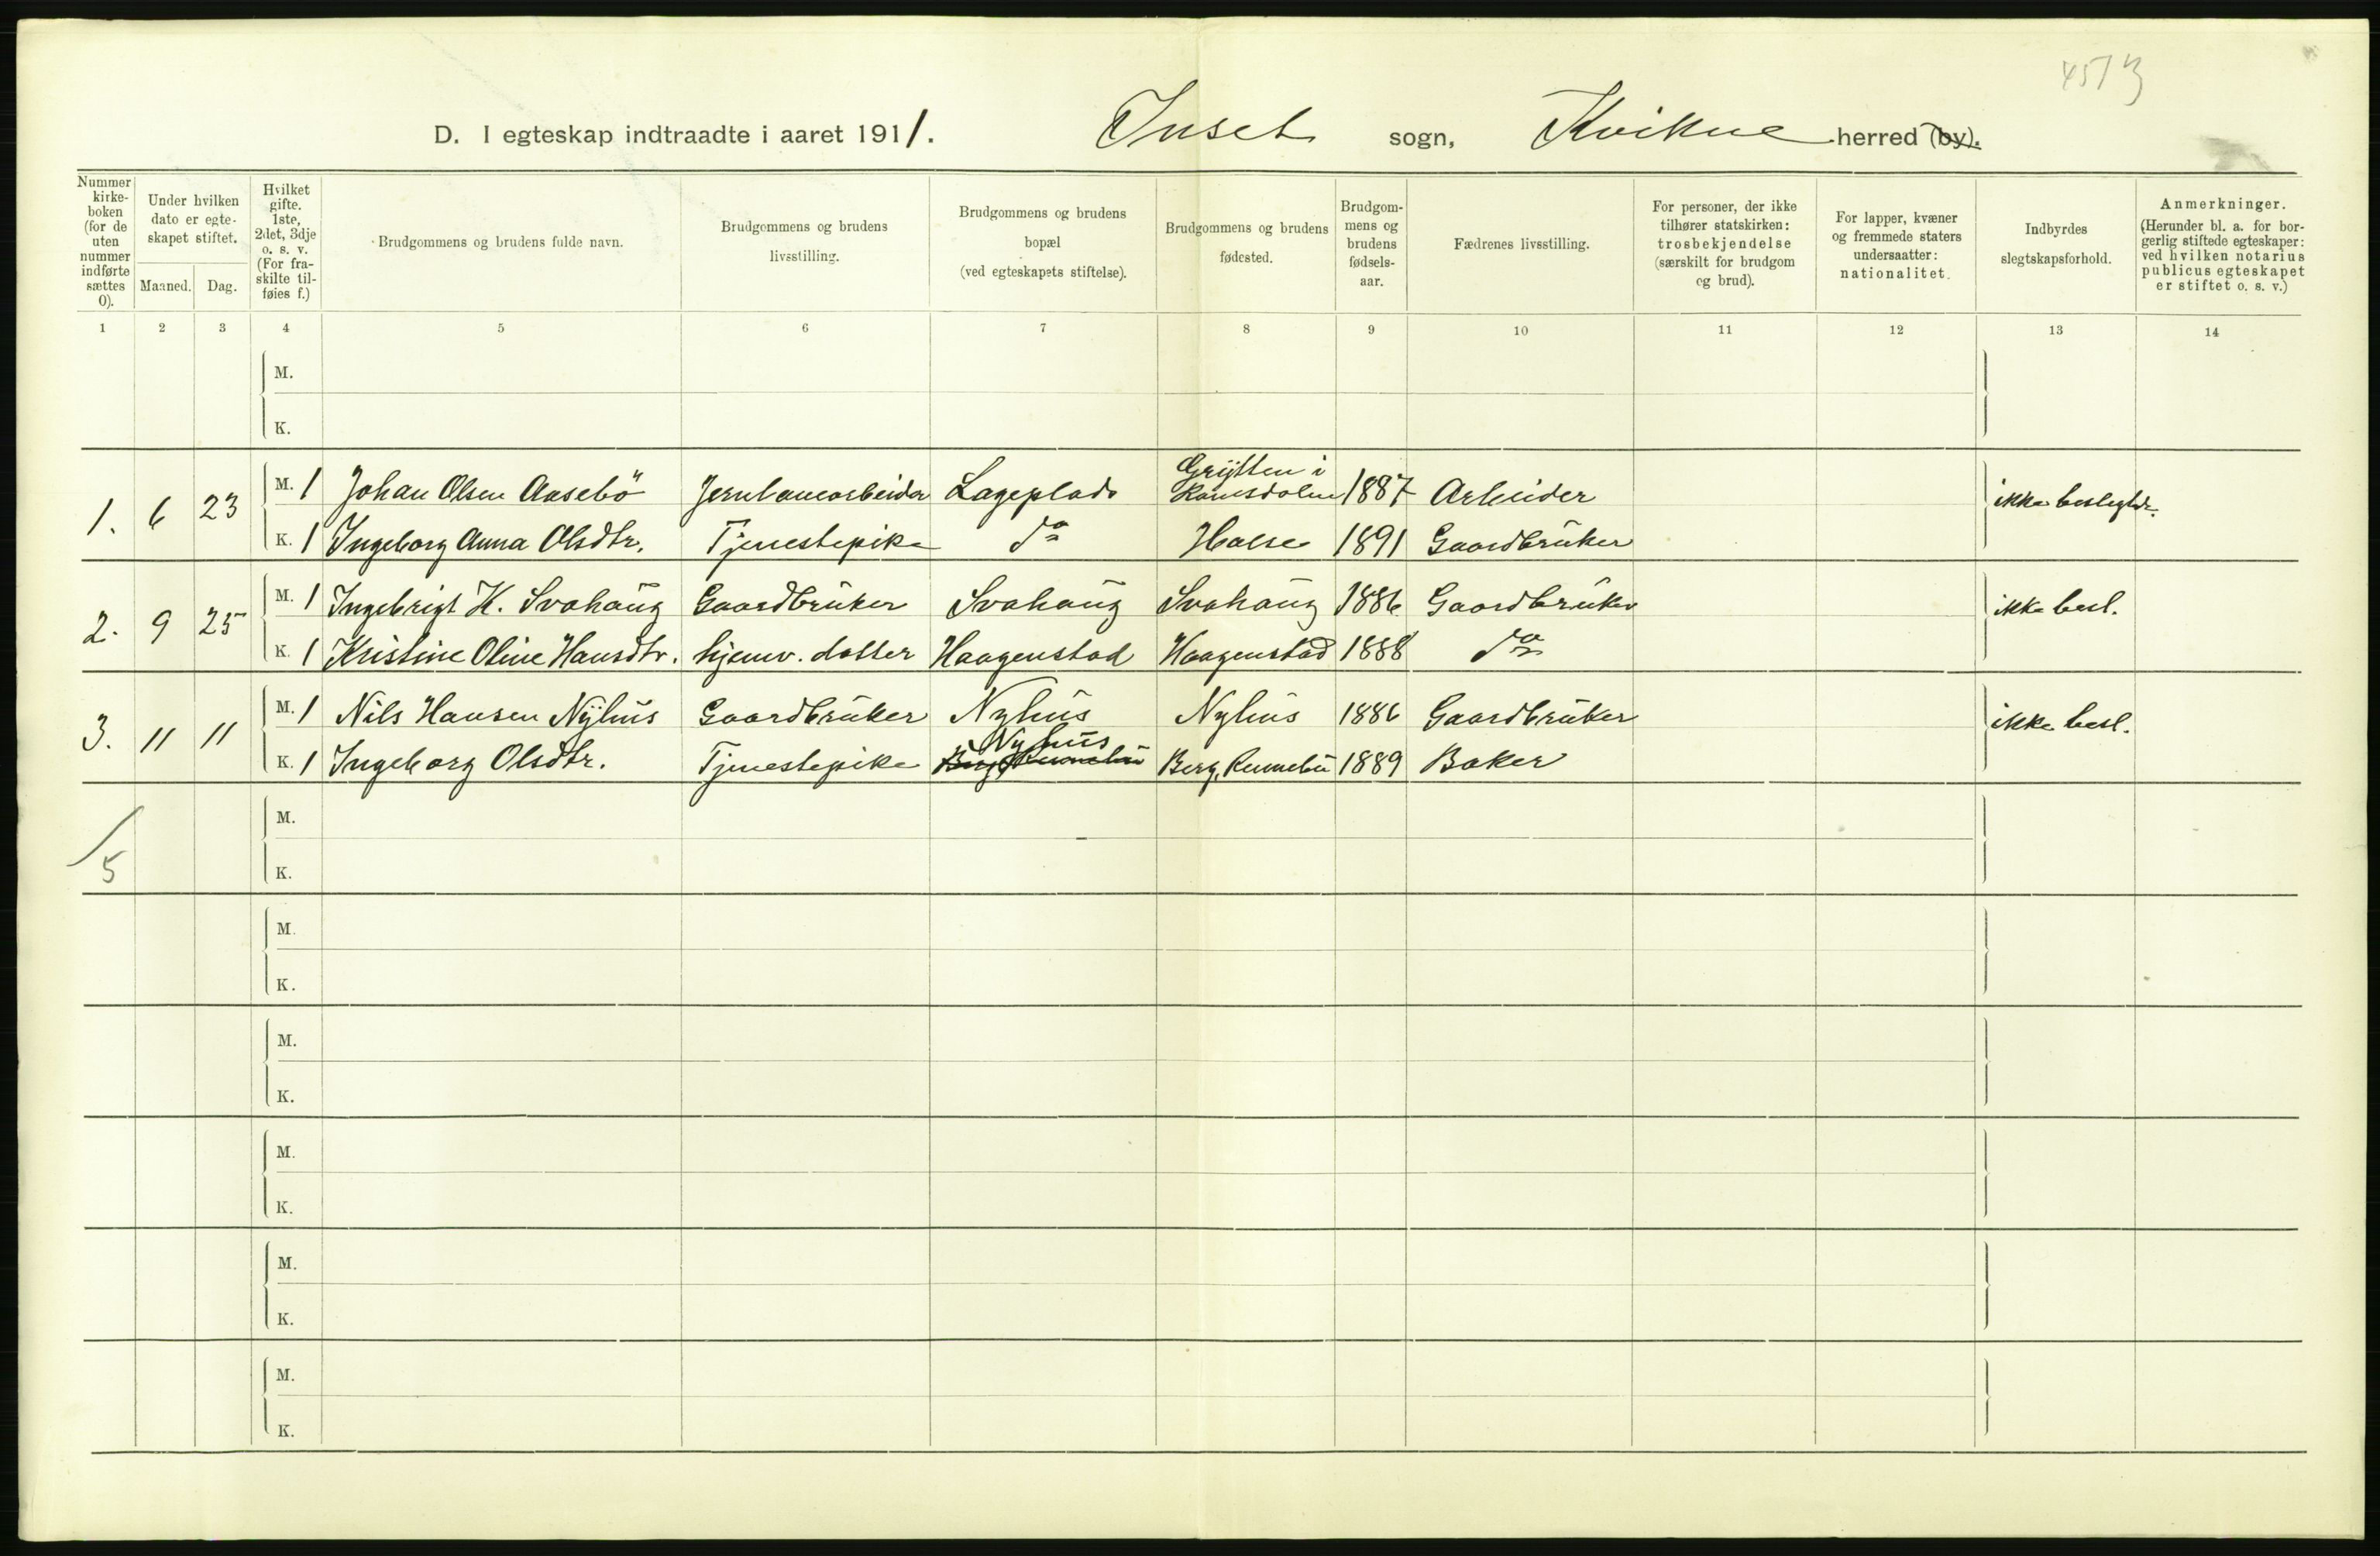 4513
D. I egteskap indtraadte i aaret 1911. Inset sogn, Kvikne herred (by).
Nummer kirke-boken (for de uten nummer indførte sættes 0).
Under hvilken dato er egte-skapet stiftet.
Maaned. Dag.
Hvilket gifte. 1ste, 2det, 3dje o. s. v. (For fra-skilte til-føies f.)
Brudgommens og brudens fulde navn.
Brudgommens og brudens livsstilling.
Brudgommens og brudens bopæl (ved egteskapets stiftelse).
Brudgommens og brudens fødested.
Brudgom-mens og brudens fødsels-aar.
Fædrenes livsstilling.
For personer, der ikke tilhører statskirken: trosbekjendelse (særskilt for brudgom og brud).
For lapper, kvæner og fremmede staters undersaatter: nationalitet.
Indbyrdes slegtskapsforhold.
Anmerkninger. (Herunder bl. a. for bor-gerlig stiftede egteskaper: ved hvilken notarius publicus egteskapet er stiftet o. s. v.)
1 2 3 4 5 6 7 8 9 10 11 12 13 14
M.
K.
1. 6 23 M. 1 Johan Olsen Aasebö Jernbanearbeider Lageplads Grÿtten i Romsdalen 1887 Arbeider ikke beslegtde.
K. 1 Ingeborg Anna Olsdtr. Tjenestepike do Halse 1891 Gaardbruker
2. 9 25 M. 1 Ingebrigt H. Svahaug Gaardbruker Svahaug Svahaug 1886 Gaardbruker ikke besl.
K. 1 Kristine Oline Hansdtr. hjemv. datter Haagenstad Haagenstad 1888 do
3. 11 11 M. 1 Nils Hansen Nÿhus Gaardbruker Nyhus Nyhus 1886 Gaardbruker ikke besl.
K. 1 Ingeborg Olsdtr. Tjenestepike Nyhus Berg, Rennebu Berg, Rennebu 1889 Baker
/5
M.
K.
M.
K.
M.
K.
M.
K.
M.
K.
M.
K.